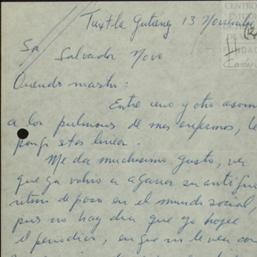 Tuxtla Gutierrez 13 Noviembre
Sr Salvador Novo
Querido maestro:
Entre uno y otro asom
a los pulmones de mis enfermos, le
pongo estas lineas.
Me da muchisimo gusto, ver
que ya volvio a agarrar su antiguo
ritmo de paso en el mundo social,
pues no hay dia que yo hojee
el periodico, en que no le vea con